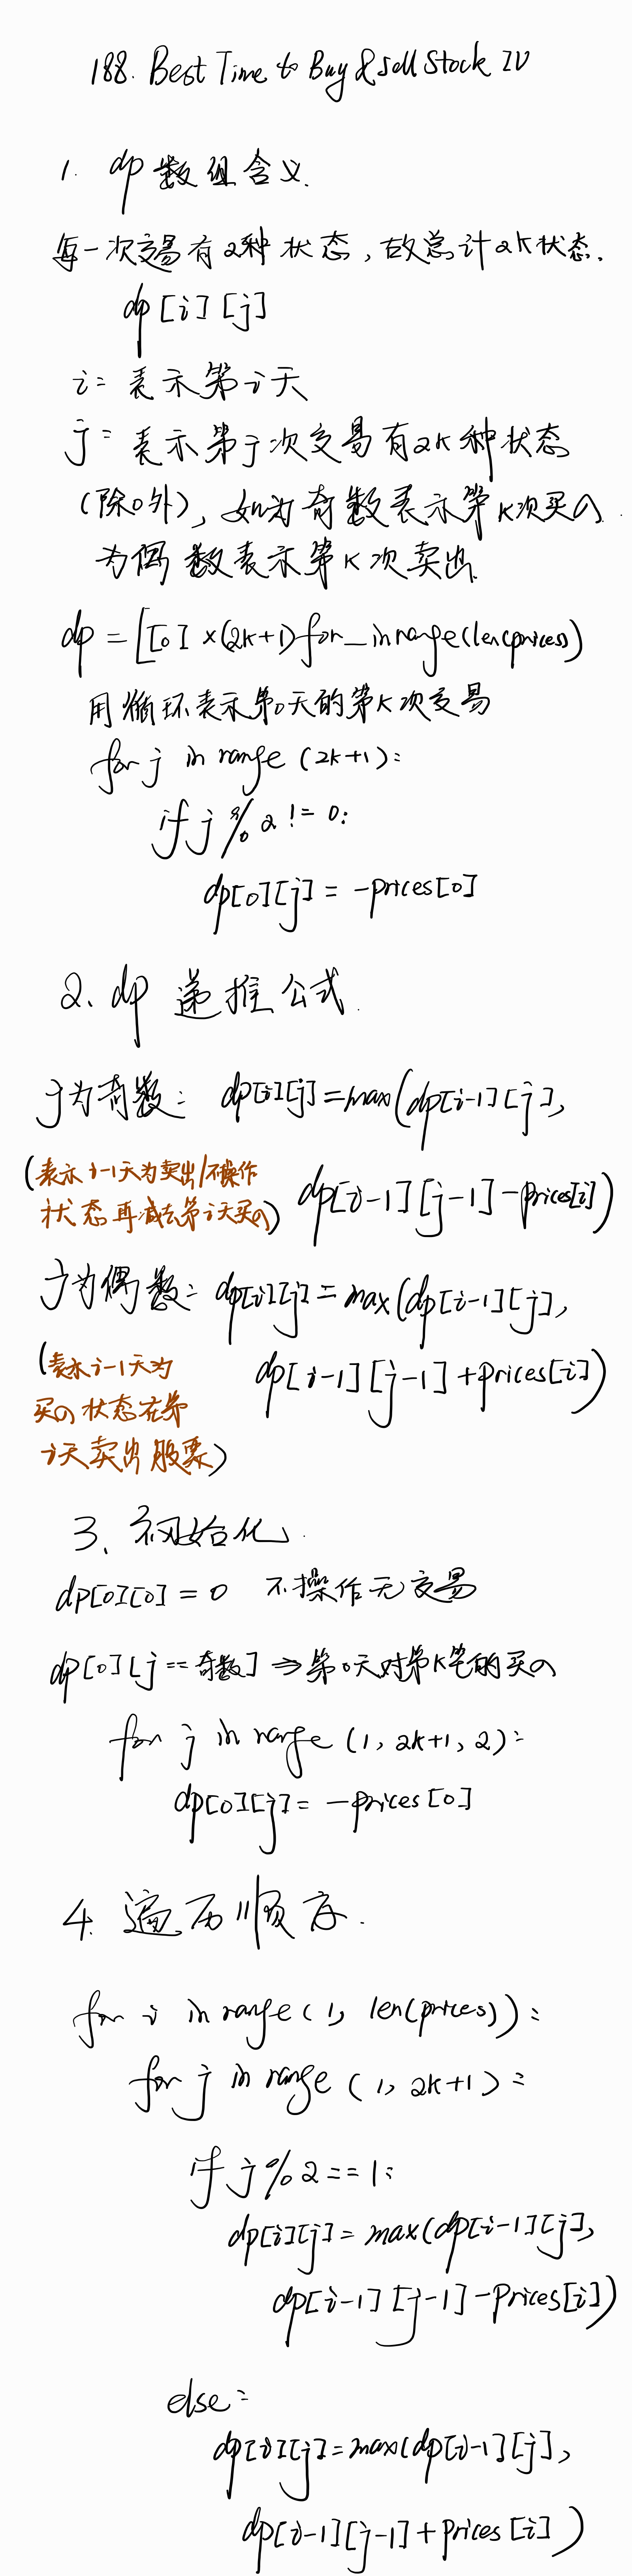 188. Best Time to Buy & Sell Stock IV
1. dp 数组含义.
每一次交易有2种状态，故总计2k状态.
dp[i][j]
i: 表示第i天
j: 表示第j次交易有2k种状态
(除0外)，如j为奇数表示第k次买入.
为偶数表示第k次卖出
dp = [[0] ×(2k+1) for _ in range(len(prices))
用循环表示第0天的第k次交易
for j in range (2k+1):
if j % 2 != 0:
dp[0][j] = -prices[0]
2. dp 递推公式.
j为奇数: dp[i][j]=max(dp[i-1][j],
(表示i-1天为卖出/不操作
状态再减去第i天买入) dp[i-1][j-1]-prices[i])
j为偶数: dp[i][j]=max(dp[i-1][j],
(表示i-1天为
买入状态在第 dp[i-1][j-1]+prices[i])
i天卖出股票)
3. 初始化.
dp[0][0] = 0 不操作无交易
dp[0][j==奇数] ⇒ 第0天对第k笔的买入
for j in range (1, 2k+1, 2):
dp[0][j] = -prices[0]
4. 遍历顺序.
for i in range(1, len(prices)):
for j in range (1, 2k+1):
if j%2==1:
dp[i][j]=max(dp[i-1][j],
dp[i-1][j-1]-prices[i])
else:
dp[i][j]=max(dp[i-1][j],
dp[i-1][j-1]+prices[i])